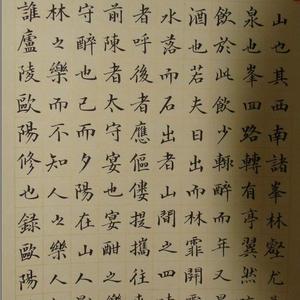 山也其西南諸峯林壑尤
泉也峯回路轉有亭翼然
飲於此飲少輒醉而年又
酒也若夫日出而林霏開
水落而石出者山間之四
者呼後者應傴僂提攜往來
前陳者太守宴也宴酣之
守醉也已而夕陽在山人影
林之樂而不知人之樂人
誰廬陵歐陽修也録歐陽